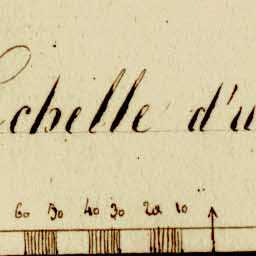 Echelle d'u
60 50 40 30 20 10